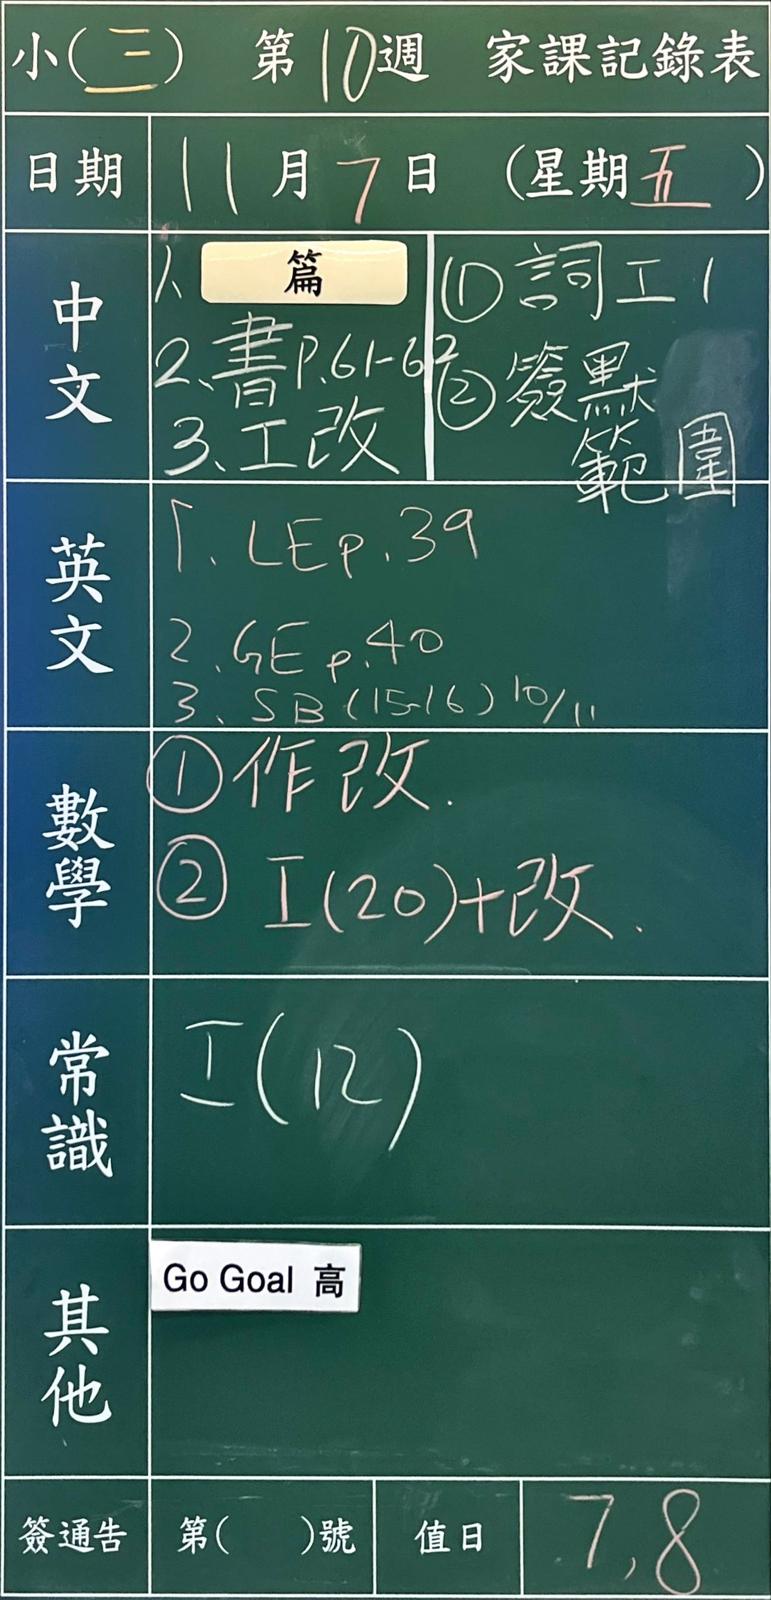 小(三) 第10週 家課記錄表
日期 11月7日 (星期五)
中文
1、篇
2、書P.61-62
3、工改
① 詞工1
② 簽默
範圍
英文
1. LE p.39
2. GE p.40
3. SB (15-16) 10/11
數學
① 作改.
② 工(20)+改.
常識
工(12)
其他
Go Goal 高
簽通告 第( )號 值日 7,8